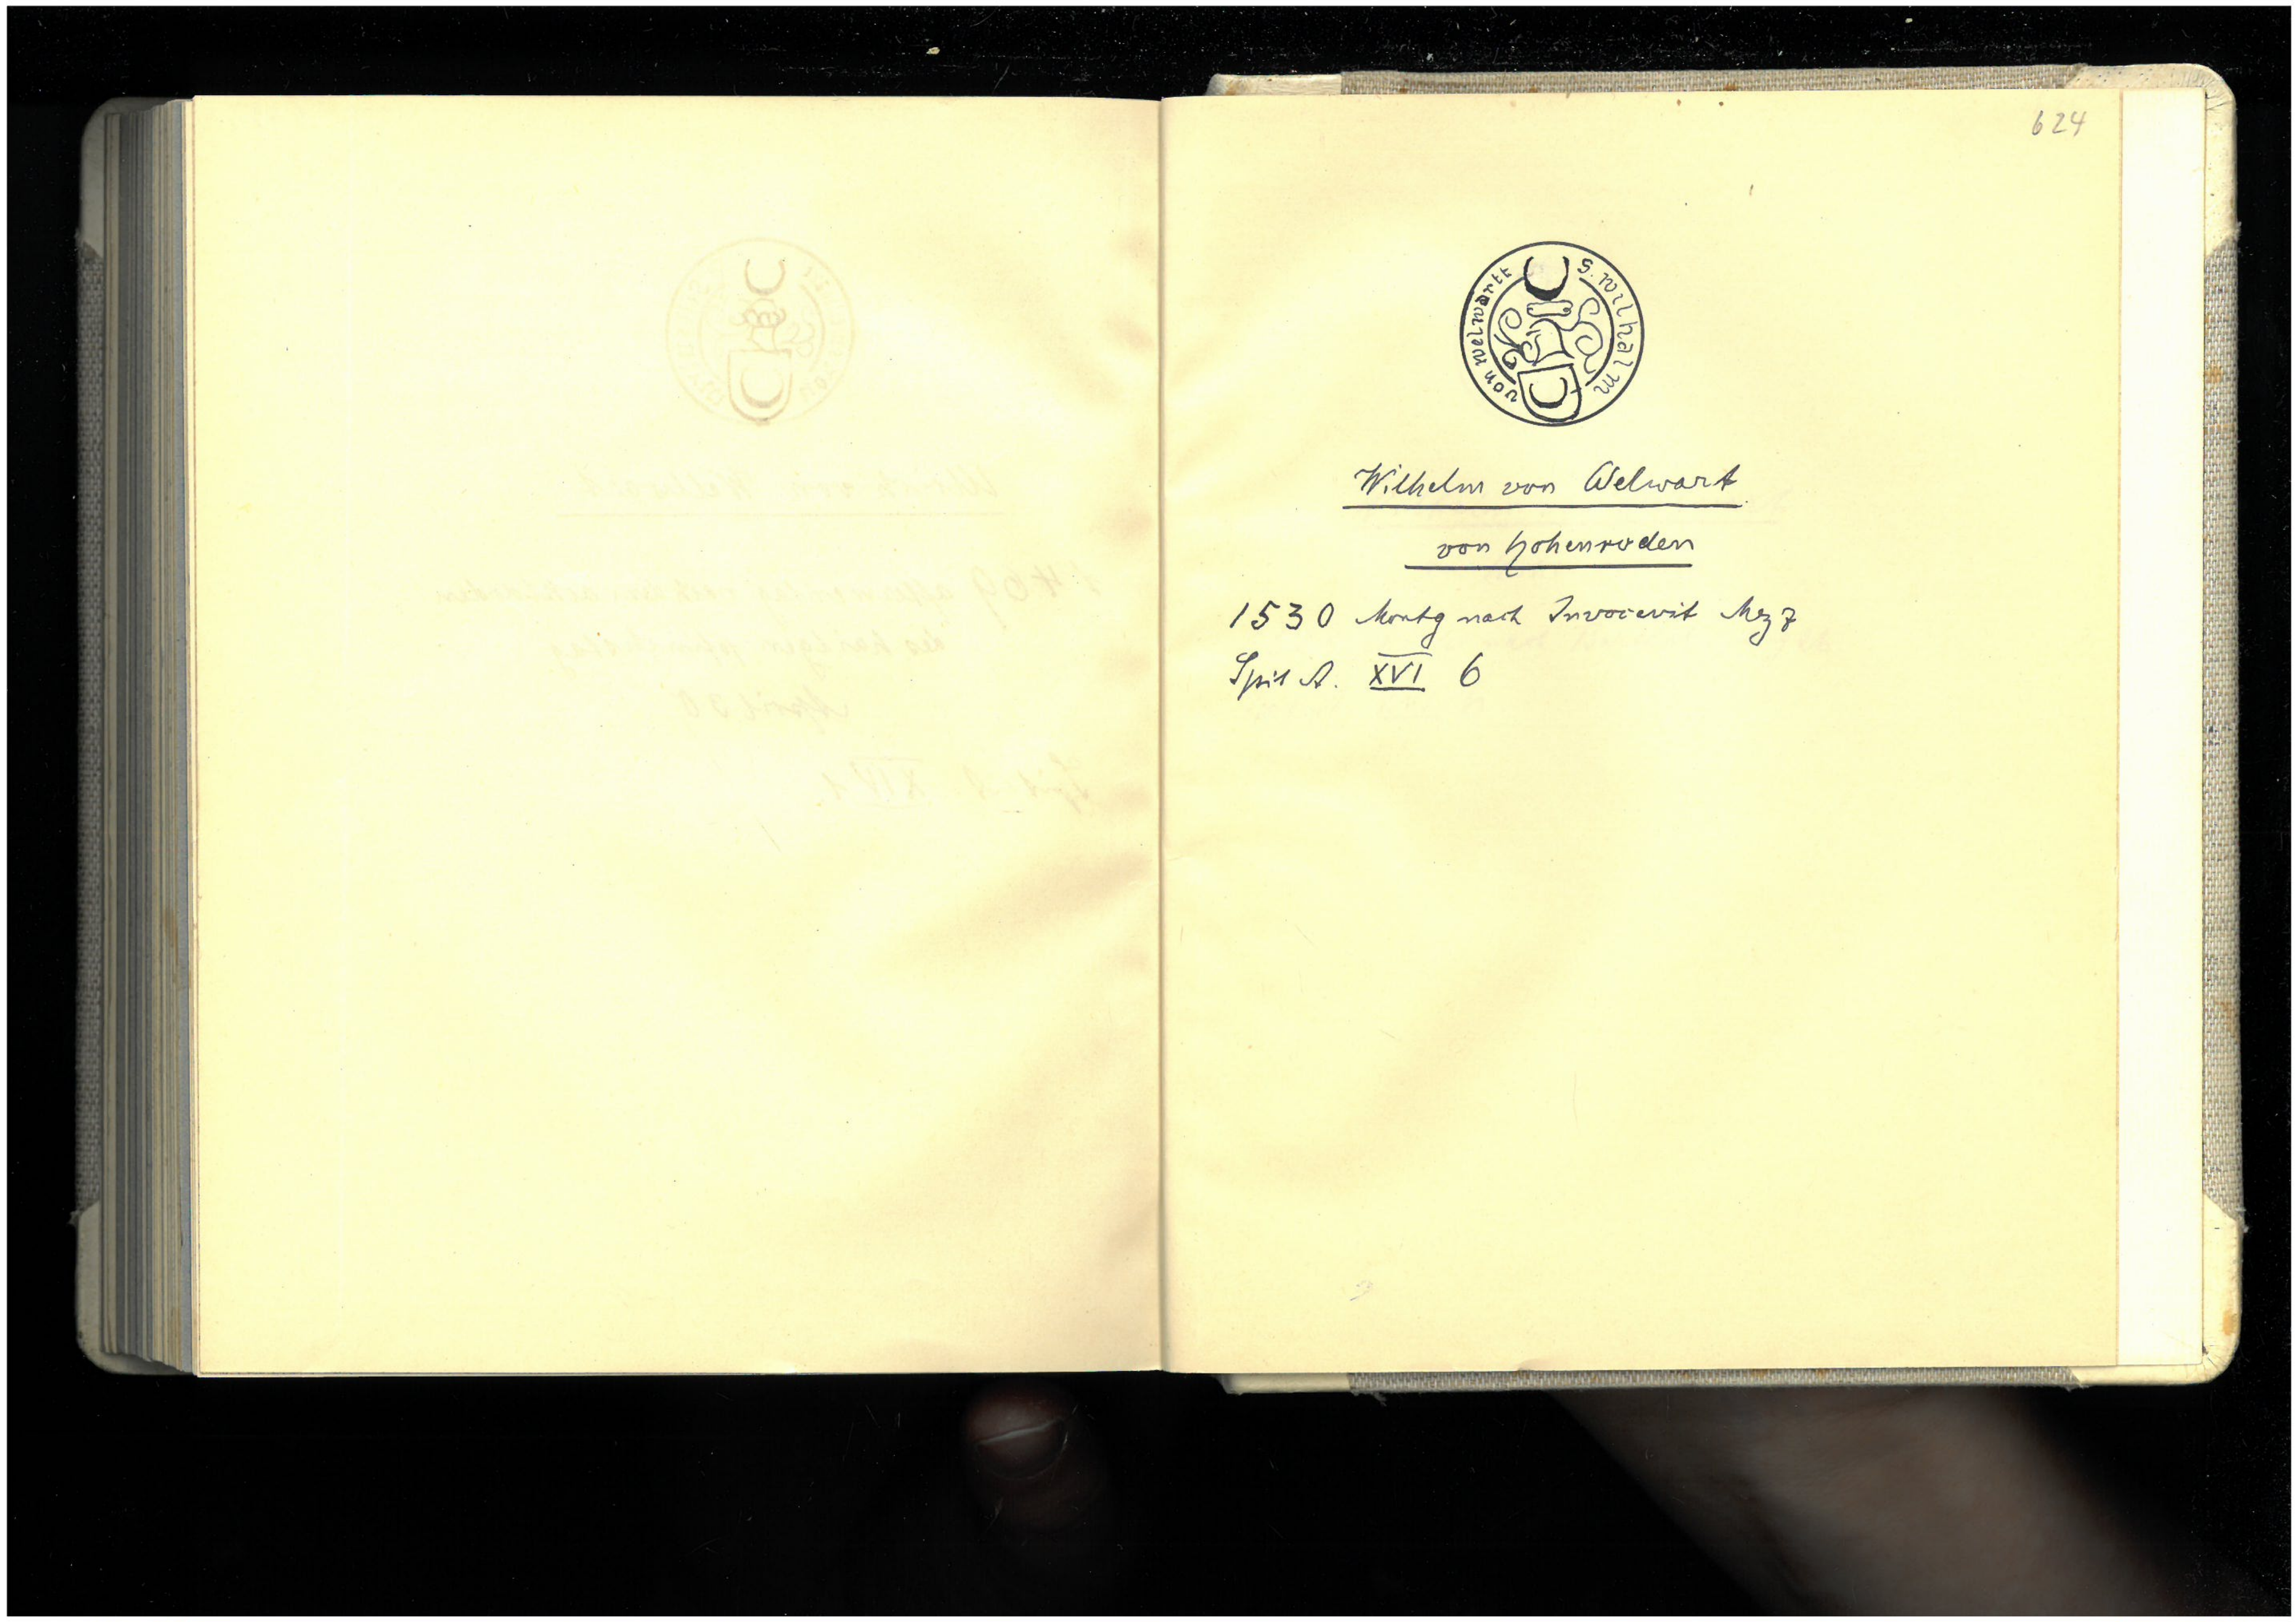 624
S. wilhalm von welwartt
Wilhelm von Welwart
von Hohenroden
1530 Montg nach Invocavit Mrz 7
Spit A. XVI 6